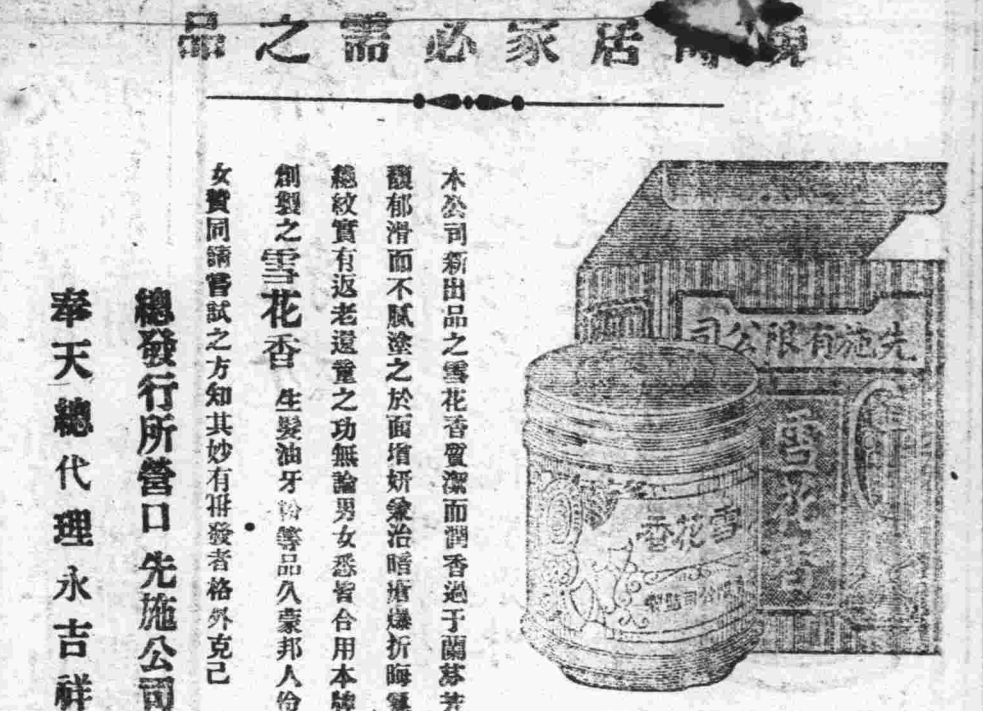 居家必需之品
先施有限公司
雪花香
雪花香
本公司新出品之雪花香質潔而潤香過于蘭蓀芬
馥郁滑而不膩塗之於面增妍兼治暗瘡爆折晦氣
縐紋實有返老還童之功無論男女悉皆合用本牌
創製之雪花香 生髮油牙粉等品久蒙邦人份
女贊同請嘗試之方知其妙有 發者格外克己
總發行所營口先施公司
奉天總代理永吉祥